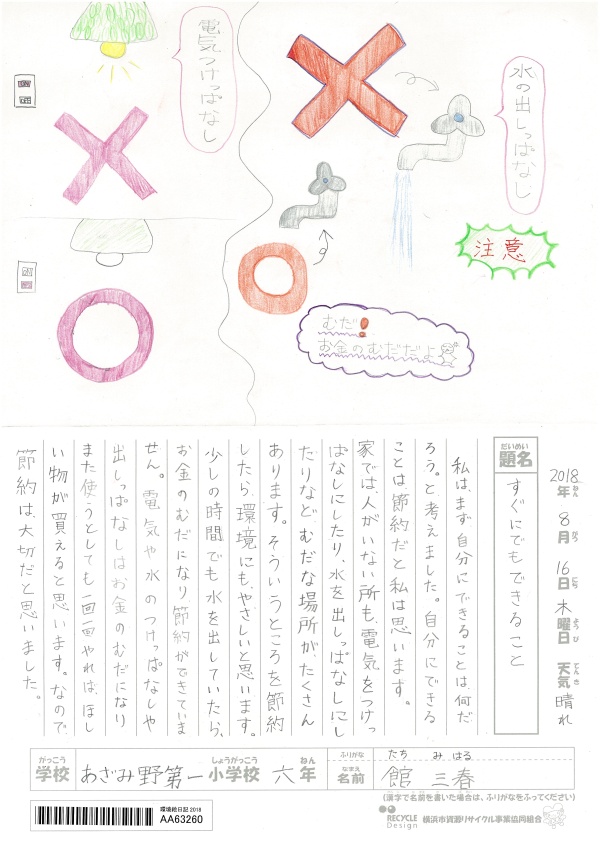 電気つけっぱなし
水の出しっぱなし
注意
むだ!
お金のむだだよ
2018年 8月 16日 木曜日 天気 晴れ
ねん がつ にち ようび てんき
だいめい
題名
すぐにでもできること
私は、まず自分にできることは、何だ
ろう。と考えました。自分にできる
ことは、節約だと私は思います。
家では、人がいない所も、電気をつけっ
ぱなしにしたり、水を出しっぱなしにし
たりなど むだな場所が、たくさん
あります。そういうところを節約
したら、環境にも、やさしいと思います。
少しの時間でも水を出していたら、
お金のむだになり節約ができていま
せん。電気や水のつけっぱなしや
出しっぱなしはお金のむだになり
また使うとしても一回一回やれは、ほし
い物が買えると思います。なので
節約は、大切だと思いました。
がっこう
学校
あざみ野第一小学校 六年
しょうがっこう ねん
ふりがな
たち み はる
なまえ
名前
館 三春
(漢字で名前を書いた場合は、ふりがなをふってください)
環境絵日記 2018
AA63260
RECYCLE Design
横浜市資源リサイクル事業協同組合